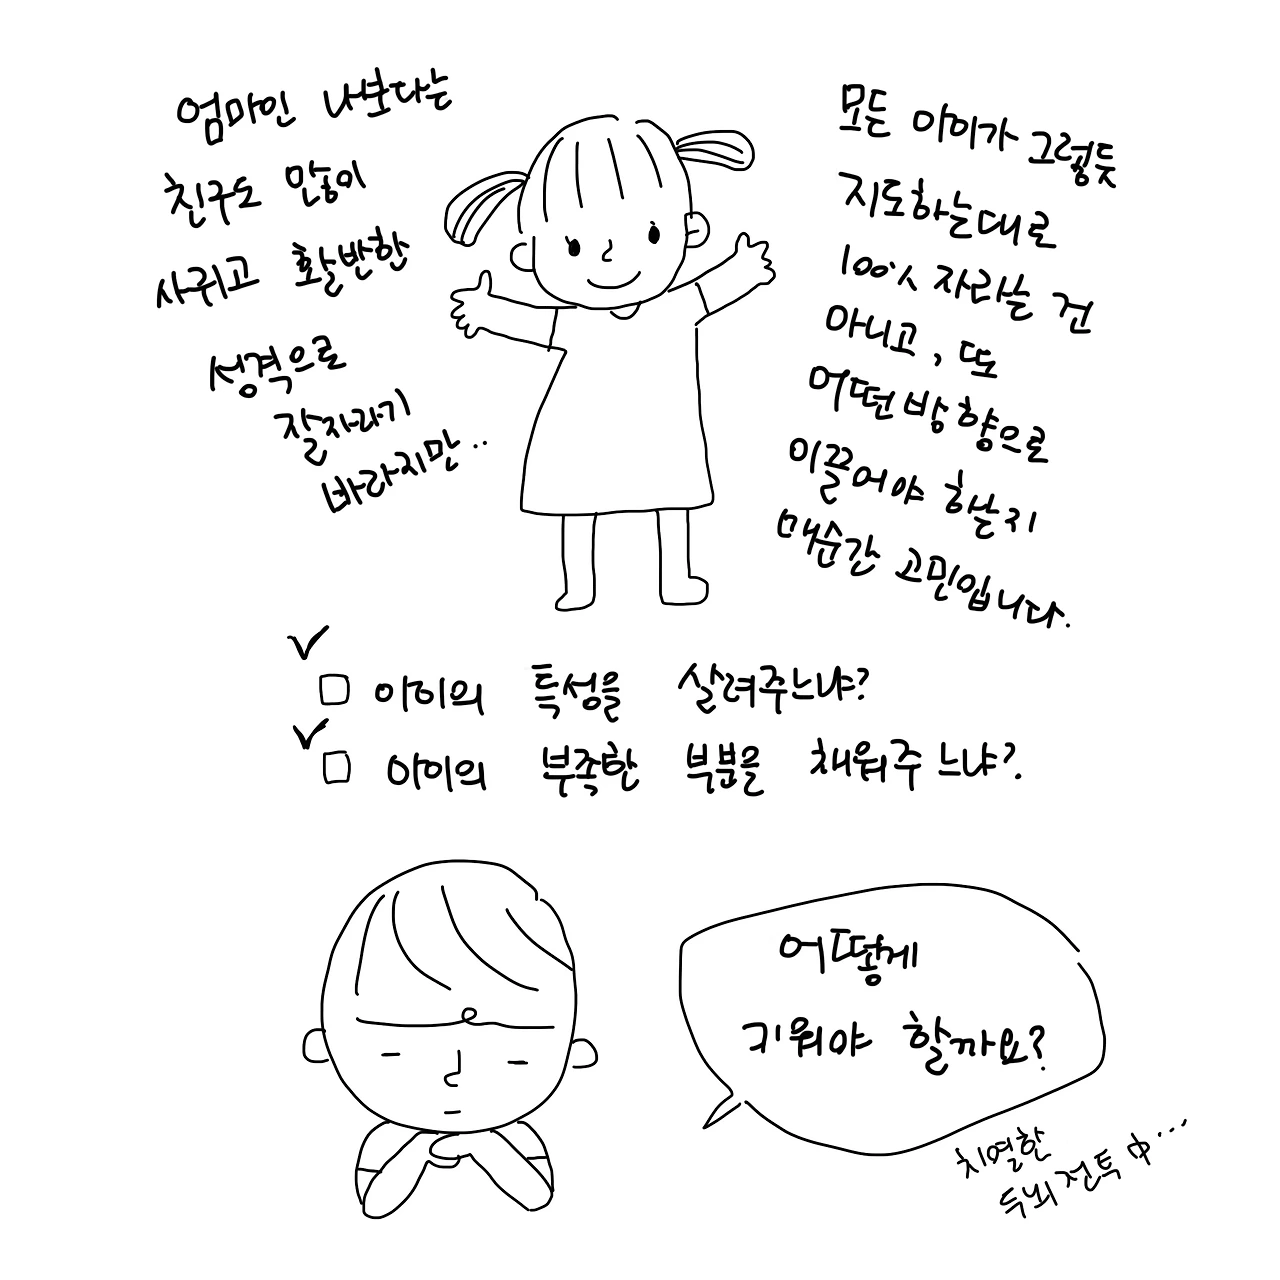 엄마인 나보다는
친구도 많이
사귀고 활발한
성격으로
잘자라기
바라지만..
모든 아이가 그렇듯
지도하는대로
100% 자라는 건
아니고, 또
어떤 방향으로
이끌어야 할지
매순간 고민입니다.
✓
□ 아이의 특성을 살려주느냐?
✓
□ 아이의 부족한 부분을 채워주느냐?.
어떻게
키워야 할까요?
치열한
두뇌 전투 中...